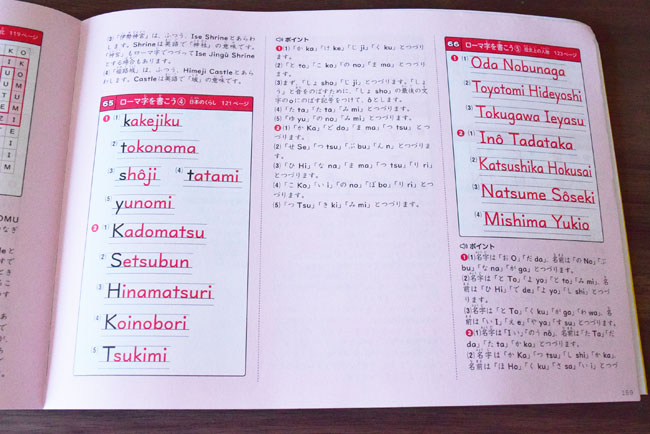 119ページ
③「伊勢神宮」は、ふつう、Ise Shrineとあらわ
します。Shrineは英語で「神社」の意味です。
「神宮」もローマ字でつづってIse Jingû Shrine
とする場合もあります。
④「姫路城」は、ふつう、Himeji Castleとあら
わします。Castleは英語で「城」の意味です。
65 ローマ字を書こう④ 日本のくらし 121ページ
❶ (1) kakejiku
(2) tokonoma
(3) shôji (4) tatami
(5) yunomi
❷ (1) Kadomatsu
(2) Setsubun
(3) Hinamatsuri
(4) Koinobori
(5) Tsukimi
ポイント
❶(1)「か ka」「け ke」「じ ji」「く ku」とつづり
ます。
(2)「と to」「こ ka」「の no」「ま ma」とつづり
ます。
(3)まず、「しょ sho」「じ ji」とつづります。「しょ
う」と音をのばすために、「しょ sho」の最後の文
字のoにのばす記号をつけて、ôとします。
(4)「た ta」「た ta」「み mi」とつづります。
(5)「ゆ yu」「の no」「み mi」とつづります。
❷(1)「か Ka」「ど do」「ま ma」「つ tsu」とつ
づります。
(2)「せ Se」「つ tsu」「ぶ bu」「ん n」とつづりま
す。
(3)「ひ Hi」「な na」「ま ma」「つ tsu」「り ri」
とつづります。
(4)「こ Ko」「い i」「の no」「ぼ bo」「り ri」とつ
づります。
(5)「つ Tsu」「き ki」「み mi」とつづります。
66 ローマ字を書こう⑤ 歴史上の人物 123ページ
❶ (1) Oda Nobunaga
(2) Toyotomi Hideyoshi
(3) Tokugawa Ieyasu
❷ (1) Inô Tadataka
(2) Katsushika Hokusai
(3) Natsume Sôseki
(4) Mishima Yukio
ポイント
❶(1)名字は「お O」「だ da」、名前は「の No」「ぶ
bu」「な na」「が ga」とつづります。
(2)名字は「と To」「よ yo」「と to」「み mi」、名
前は「ひ Hi」「で de」「よ yo」「し shi」とつづり
ます。
(3)名字は「と To」「く ku」「が ga」「わ wa」、名
前は「い I」「え e」「や ya」「す su」とつづります。
❷(1)名字は「い I」「のう nô」、名前は「た Ta」「だ
da」「た ta」「か ka」とつづります。
(2)名字は「か Ka」「つ tsu」「し shi」「か ka」、
名前は「ほ Ho」「く ku」「さ sa」「い i」とつづ
159